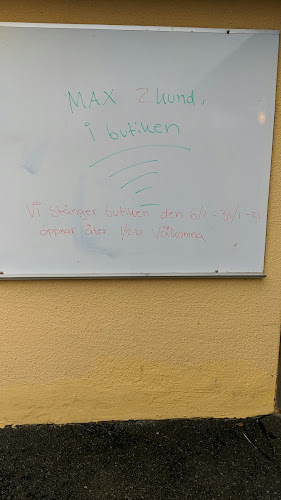 MAX 2 kund.
i butiken
Vi stänger butiken den 6/1 - 31/1 -21
öppnar åter 1/2-21 Välkomna